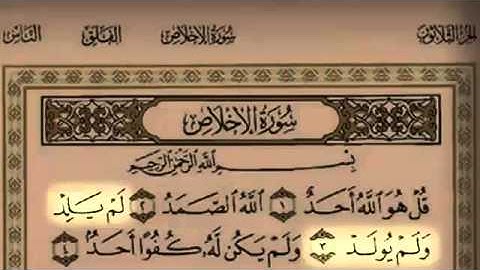 الجزء الثلاثون سُورَةُ الإِخْلَاصِ الفَلَق النَّاس
سُورَةُ الإِخْلَاصِ
بِسْمِ اللَّهِ الرَّحْمَٰنِ الرَّحِيمِ
قُلْ هُوَ اللَّهُ أَحَدٌ ١ اللَّهُ الصَّمَدُ ٢ لَمْ يَلِدْ
وَلَمْ يُولَدْ ٣ وَلَمْ يَكُن لَّهُ كُفُوًا أَحَدٌ ٤